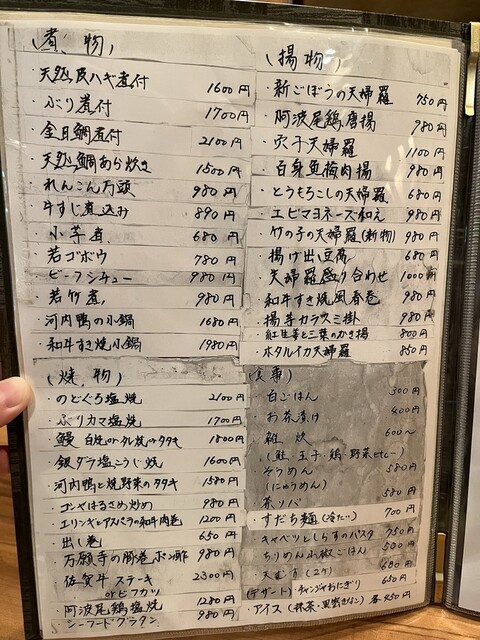 (煮物)
・天然皮ハギ煮付 1600円
・ぶり煮付 1700円
・金目鯛煮付 2100円
・天然鯛あら炊き 1500円
・れんこん万頭 980円
・牛すじ煮込み 890円
・小芋煮 680円
・若ゴボウ 780円
・ビーフシチュー 980円
・若竹煮 980円
・河内鴨の小鍋 1680円
・和牛すき焼小鍋 1980円
(焼物)
・のどぐろ塩焼 2100円
・ぶりカマ塩焼 1700円
・鰻 白焼orタレ焼orタタキ 1800円
・銀ダラ塩こうじ焼 1600円
・河内鴨と焼野菜のタタキ 1580円
・ゴーヤはるさめ炒め 980円
・エリンギとアスパラの和牛肉巻 1200円
・出し巻 650円
・万願寺の豚巻ポン酢 980円
・佐賀牛ステーキ 2300円
orビフカツ
・阿波尾鶏塩焼 1280円
・シーフードグラタン 980円
(揚物)
・新ごぼうの天婦羅 750円
・阿波尾鶏唐揚 980円
・穴子天婦羅 1100円
・白身魚梅肉揚 980円
・とうもろこしの天婦羅 680円
・エビマヨネーズ和え 980円
・竹の子の天婦羅(新物) 980円
・揚げ出し豆腐 680円
・天婦羅盛り合わせ 1000円
・和牛すき焼風春巻 980円
・揚芋カラスミ掛 980円
・紅生姜と三葉のかき揚 800円
・ホタルイカ天婦羅 850円
(食事)
・白ごはん 300円
・お茶漬け 400円
・雑炊 600〜
(鮭・玉子・鶏・野菜
・そうめん 580円
(にゅうめん)
・茶ソバ 580円
・すだち麺(冷たい) 700円
・キャベツとしらすのパスタ 750円
・ちりめん山椒ごはん 500円
・天むす(2ケ) 680円
・チャンジャおにぎり 650円
(デザート)
・アイス(抹茶・黒蜜きなこ) 各450円